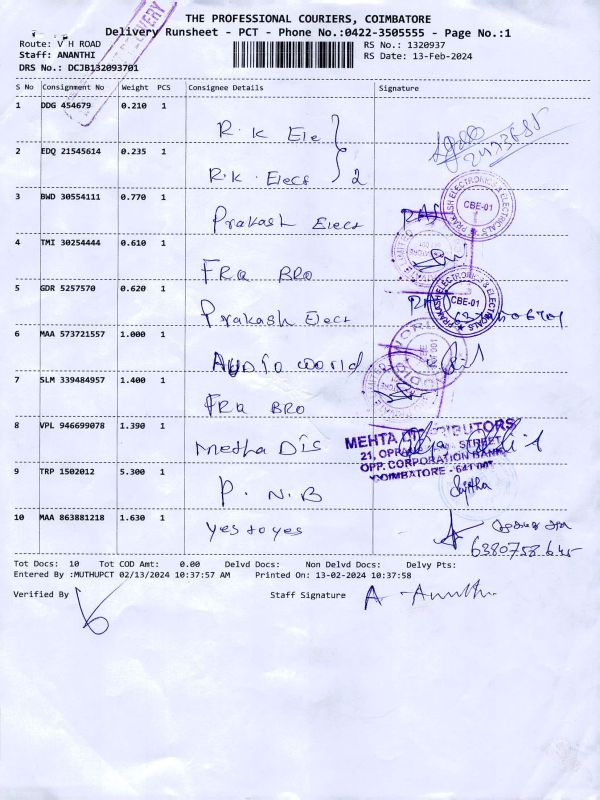 THE PROFESSIONAL COURIERS, COIMBATORE
Delivery Runsheet - PCT - Phone No.:0422-3505555 - Page No.:1
Route: V H ROAD
Staff: ANANTHI
DRS No.: DCJB132093701
RS No.: 1320937
RS Date: 13-Feb-2024
S No Consignment No Weight PCS Consignee Details Signature
1 DDG 454679 0.210 1 R.K Ele
2 EDQ 21545614 0.235 1 R.K. Elect 2
3 BWD 30554111 0.770 1 Prakash Elect
PRAKASH ELECTRONICS & ELECTRICALS CBE-01
4 TMI 30254444 0.610 1 FRa BRO
5 GDR 5257570 0.620 1 Prakash Elect
PRAKASH ELECTRONICS & ELECTRICALS CBE-01
6 MAA 573721557 1.000 1 AUDio world.
7 SLM 339484957 1.400 1 FRa BRO
8 VPL 946699078 1.390 1 metha Dis
MEHTA DISTRIBUTORS
21, STREET
OPP. CORPORATION BANK
COIMBATORE - 641 001
9 TRP 1502012 5.300 1 P. N. B Sujitha
10 MAA 863881218 1.630 1 yes to yes
Tot Docs: 10 Tot COD Amt: 0.00 Delvd Docs: Non Delvd Docs: Delvy Pts:
Entered By :MUTHUPCT 02/13/2024 10:37:57 AM Printed On: 13-02-2024 10:37:58
Verified By Staff Signature A. Ananthi